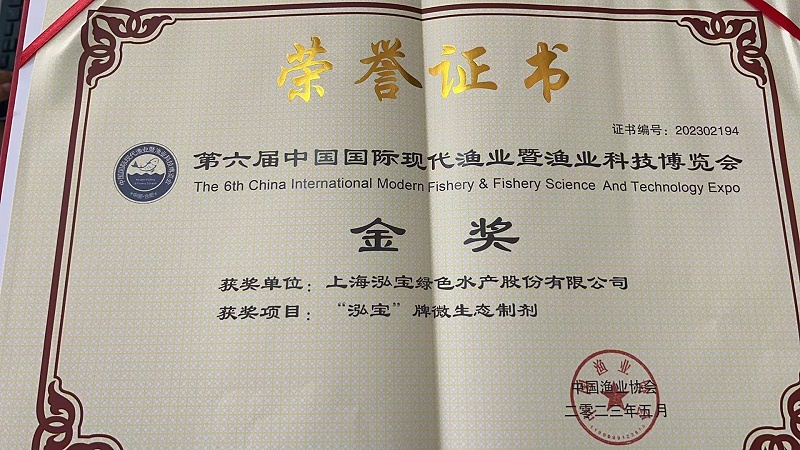 荣誉证书
证书编号：202302194
第六届中国国际现代渔业暨渔业科技博览会
The 6th China International Modern Fishery & Fishery Science And Technology Expo
金奖
获奖单位：上海泓宝绿色水产股份有限公司
获奖项目：“泓宝”牌微生态制剂
中国渔业协会
二零二三年五月